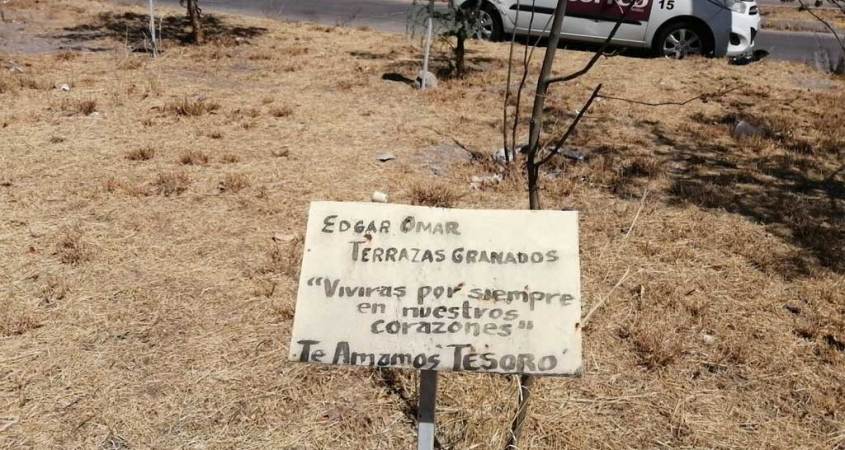 15
EDGAR OMAR
TERRAZAS GRANADOS
"VIVIRAS por siempre
en nuestros
corazones"
TE AMAMOS TESORO